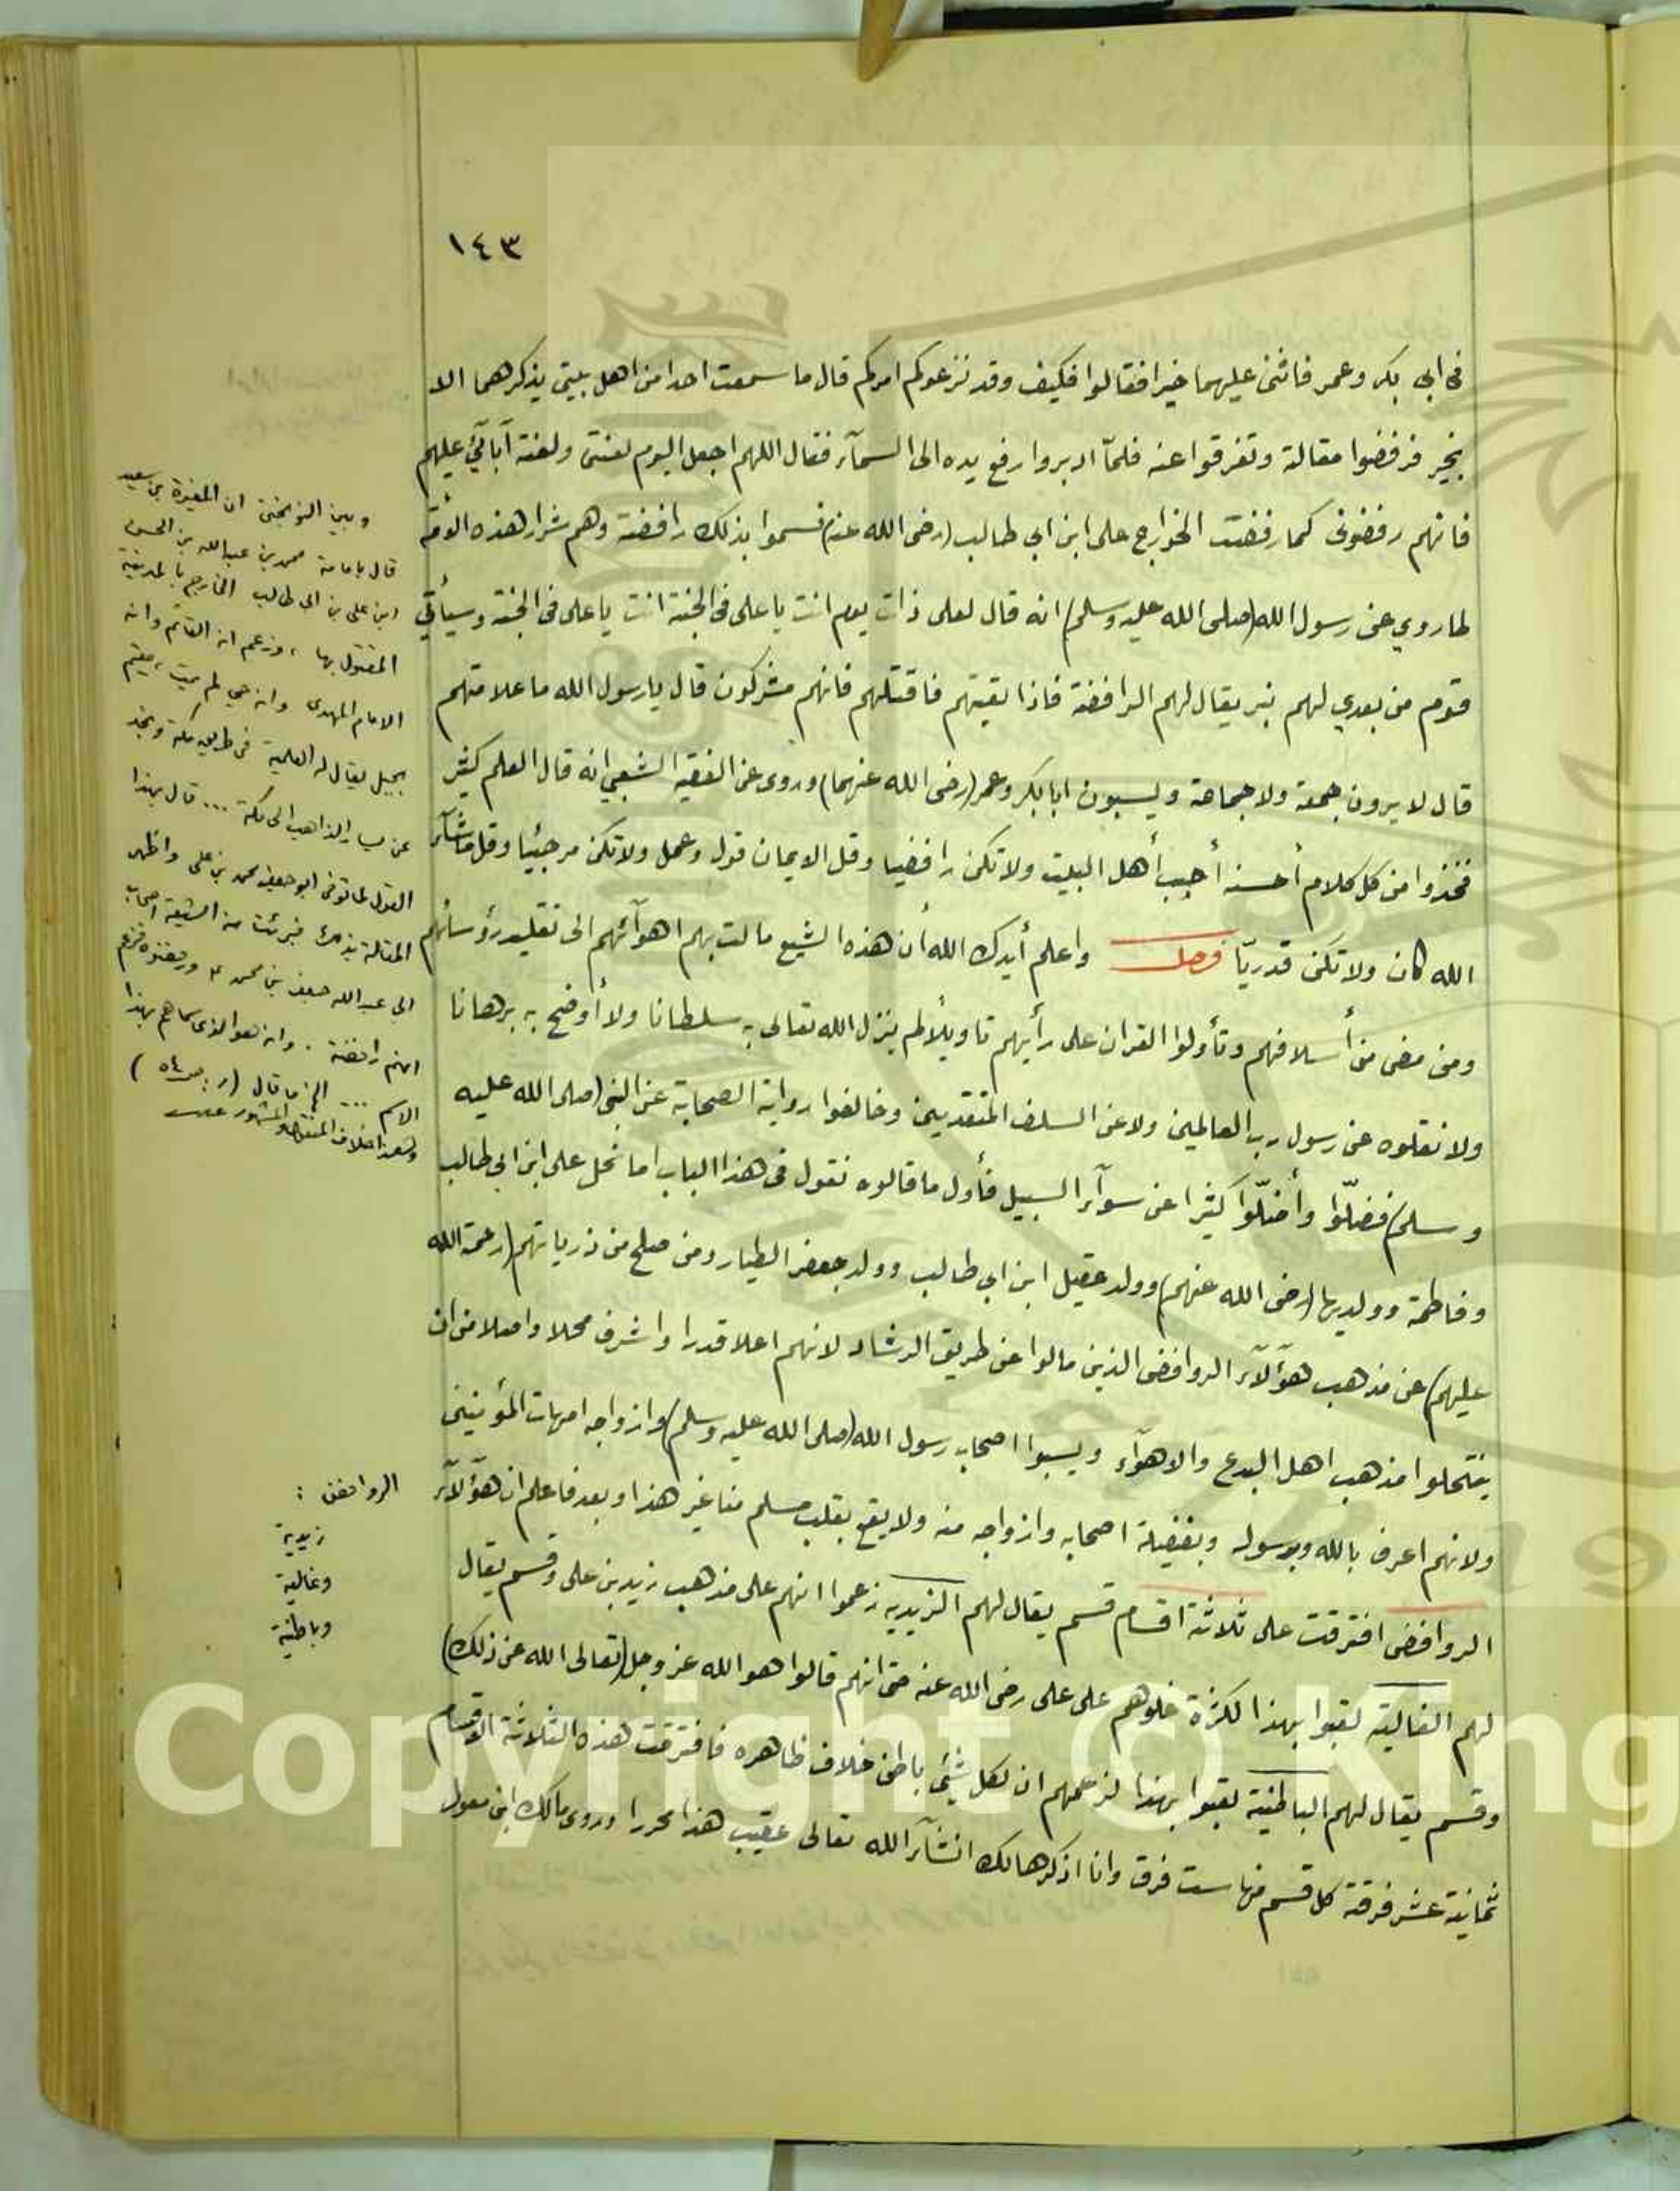 ١٤٣
في ابي بكر وعمر فاثنى عليهما خيرا فقالوا فكيف وقد نزعوكم امركم قال ما سمعت احدا من اهل بيتي يذكرهما الا
بخير فرفضوا مقالة وتفرقوا عنه فلمّا ادبروا رفع يده الى السمآء فقال اللهم اجعل اليوم لعنتى ولعنة آبآئي عليهم
فانهم رفضونى كما رفضت الخوارج على ابن ابي طالب (رضى الله عنه) فسموا بذلك رافضة وهم شرار هذه الأمة
لما روي عن رسول الله (صلى الله عليه وسلم) انه قال لعلى ذات يوم انت يا على فى الجنة انت يا على فى الجنة وسيأتي
قوم من بعدي لهم نبز يقال لهم الرافضة فاذا لقيتهم فاقتلهم فانهم مشركون قال يا رسول الله ما علامتهم
قال لا يرون جمعة ولا جماعة ويسبون ابا بكر وعمر (رضى الله عنهما) وروى عن الفقيه الشعبي انه قال العلم كثير
فخذوا من كل كلام أحسنه أحبب أهل البيت ولا تكن رافضيا وقل الايمان قول وعمل ولا تكن مرجئيا وقل ما شآء
الله كان ولا تكن قدريّا فصل واعلم أيدك الله أن هذه الشيع مالت بهم اهوآئهم الى تقليد رؤسائهم
ومن مضى من أسلافهم وتأولوا القران على رأيهم تاويلًا لم ينزل الله تعالى به سلطانا ولا أوضح به برهانا
ولا نقلوه عن رسول رب العالمين ولا عن السلف المتقدمين وخالفوا رواية الصحابة عن النبى (صلى الله عليه
وسلم) فضلّوا وأضلّوا كثيرا عن سوآء السبيل فأول ما قالوه نقول فى هذا الباب اما نحل على ابن ابي طالب
وفاطمة وولديها (رضى الله عنهم) وولد عقيل ابن ابي طالب وولد جعفر الطيار ومن صلح من ذرياتهم (رحمة الله
عليهم) عن مذهب هؤلآء الروافض الذين مالوا عن طريق الرشاد لانهم اعلا قدرا واشرف محلا واصلا من ان
ينتحلوا مذهب اهل البدع والاهوآء ويسبوا اصحاب رسول الله (صلى الله عليه وسلم) وازواجه امهات المؤمنين
ولانهم اعرف بالله وبرسوله وبفضيلة اصحابه وازواجه منه ولا يقع بقلب مسلم منا غير هذا وبعد فاعلم ان هؤلآء
الروافض افترقت على ثلاثة اقسام قسم يقال لهم الزيديه زعموا انهم على مذهب زيد بن على وقسم يقال
لهم الغالية لقبوا بهذا لكثرة غلوهم على على رضى الله عنه حتى انهم قالوا هو الله عز وجل (تعالى الله عن ذلك)
وقسم يقال لهم الباطنية لقبوا بهذا لزعمهم ان لكل شئى باطن خلاف ظاهره فافترقت هذه الثلاثة الاقسام
ثمانية عشر فرقة كل قسم منها ست فرق وانا اذكرها لك انشآء الله تعالى عقيب هذا محررا وروى مالك ابن مغول
وبين النوبختى ان المغيرة بن سعيد
قال بامامة محمد بن عبدالله بن الحسن
ابن على بن ابى طالب الخارج بالمدينة
المقتول بها ، وزعم انه القائم وانه
الامام المهدى وانه حي لم يمت ، مقيم
بجبل يقال له العلمية فى طريق مكة ونجد
عن يسار الذاهب الى مكة ... قال بهذا
القول لما توفى ابو جعفر محمد بن على واظهر
المقالة بذلك فبرئت منه الشيعة اصحاب
ابي عبدالله جعفر بن محمد ورفضوه فزعم
انهم رافضة . وانه هو الذى سماهم بهذا
الاسم ... الخ ما قال (ر: ص ٥٤ )
وهذا خلاف المنقول والمشهور
الروافض :
زيدية
وغالية
وباطنية
Copyright © King